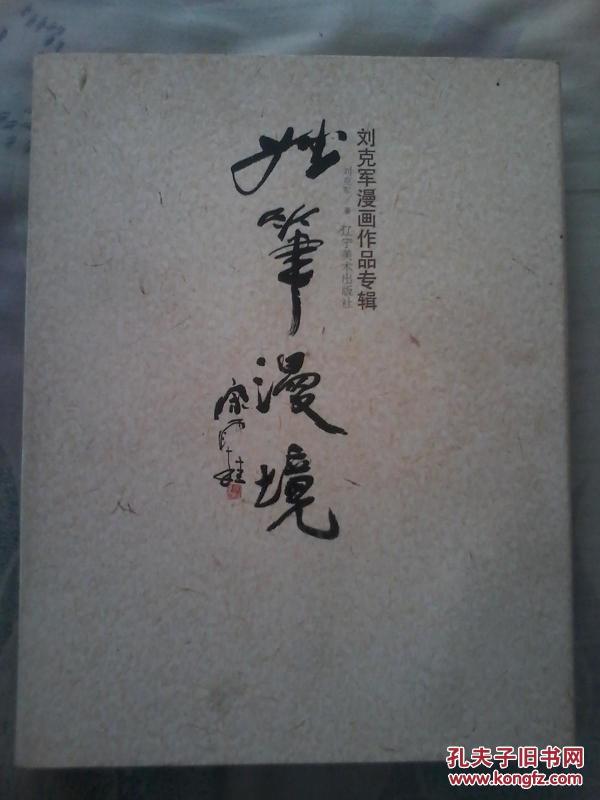 刘克军漫画作品专辑
刘克军 著 辽宁美术出版社
妙笔漫境
孔夫子旧书网
www.kongfz.com